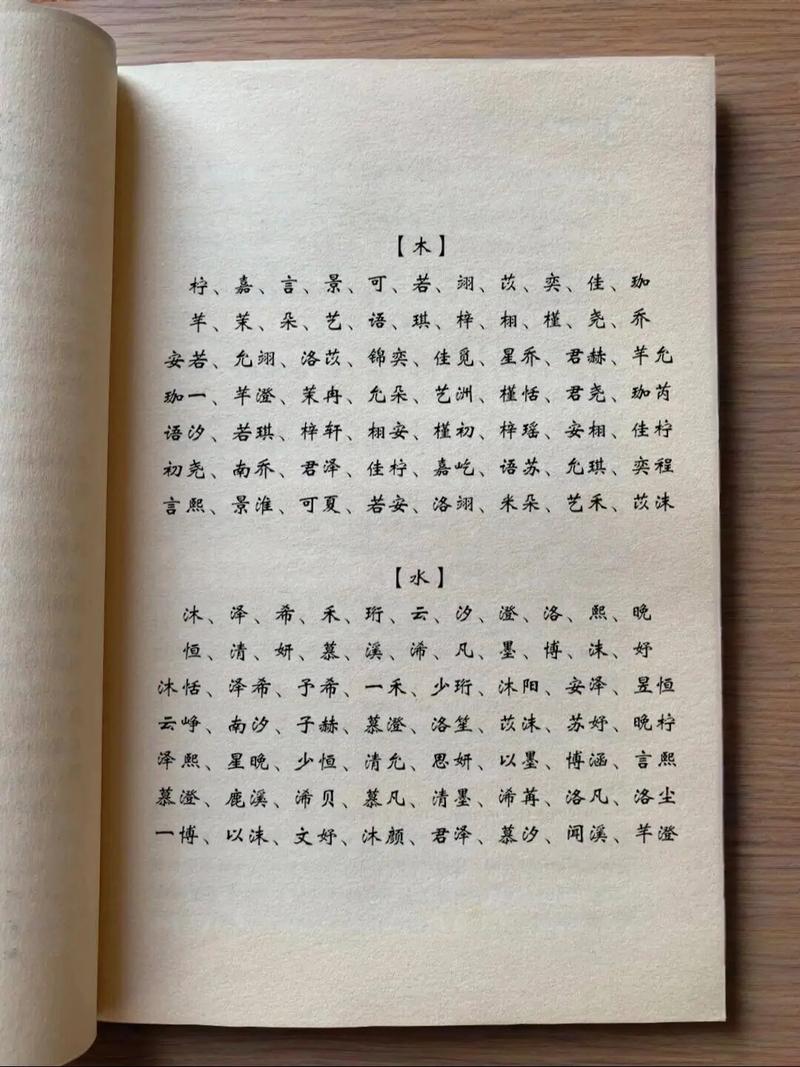 【木】
柠、嘉、言、景、可、若、翊、苡、奕、佳、珈
芊、茉、朵、艺、语、琪、梓、栩、槿、尧、乔
安若、允翊、洛苡、锦奕、佳觅、星乔、君赫、芊允
珈一、芊澄、茉冉、允朵、艺洲、槿恬、君尧、珈芮
语汐、若琪、梓轩、栩安、槿初、梓瑶、安栩、佳柠
初尧、南乔、君泽、佳柠、嘉屹、语苏、允琪、奕程
言熙、景淮、可夏、若安、洛翊、米朵、艺禾、苡沫
【水】
沐、泽、希、禾、珩、云、汐、澄、洛、熙、晚
恒、清、妍、慕、溪、浠、凡、墨、博、沫、妤
沐恬、泽希、予希、一禾、少珩、沐阳、安泽、昱恒
云峥、南汐、子赫、慕澄、洛笙、苡沫、苏妤、晚柠
泽熙、星晚、少恒、清允、思妍、以墨、博涵、言熙
慕澄、鹿溪、浠贝、慕凡、清墨、浠苒、洛凡、洛尘
一博、以沫、文妤、沐颜、君泽、慕汐、闻溪、芊澄